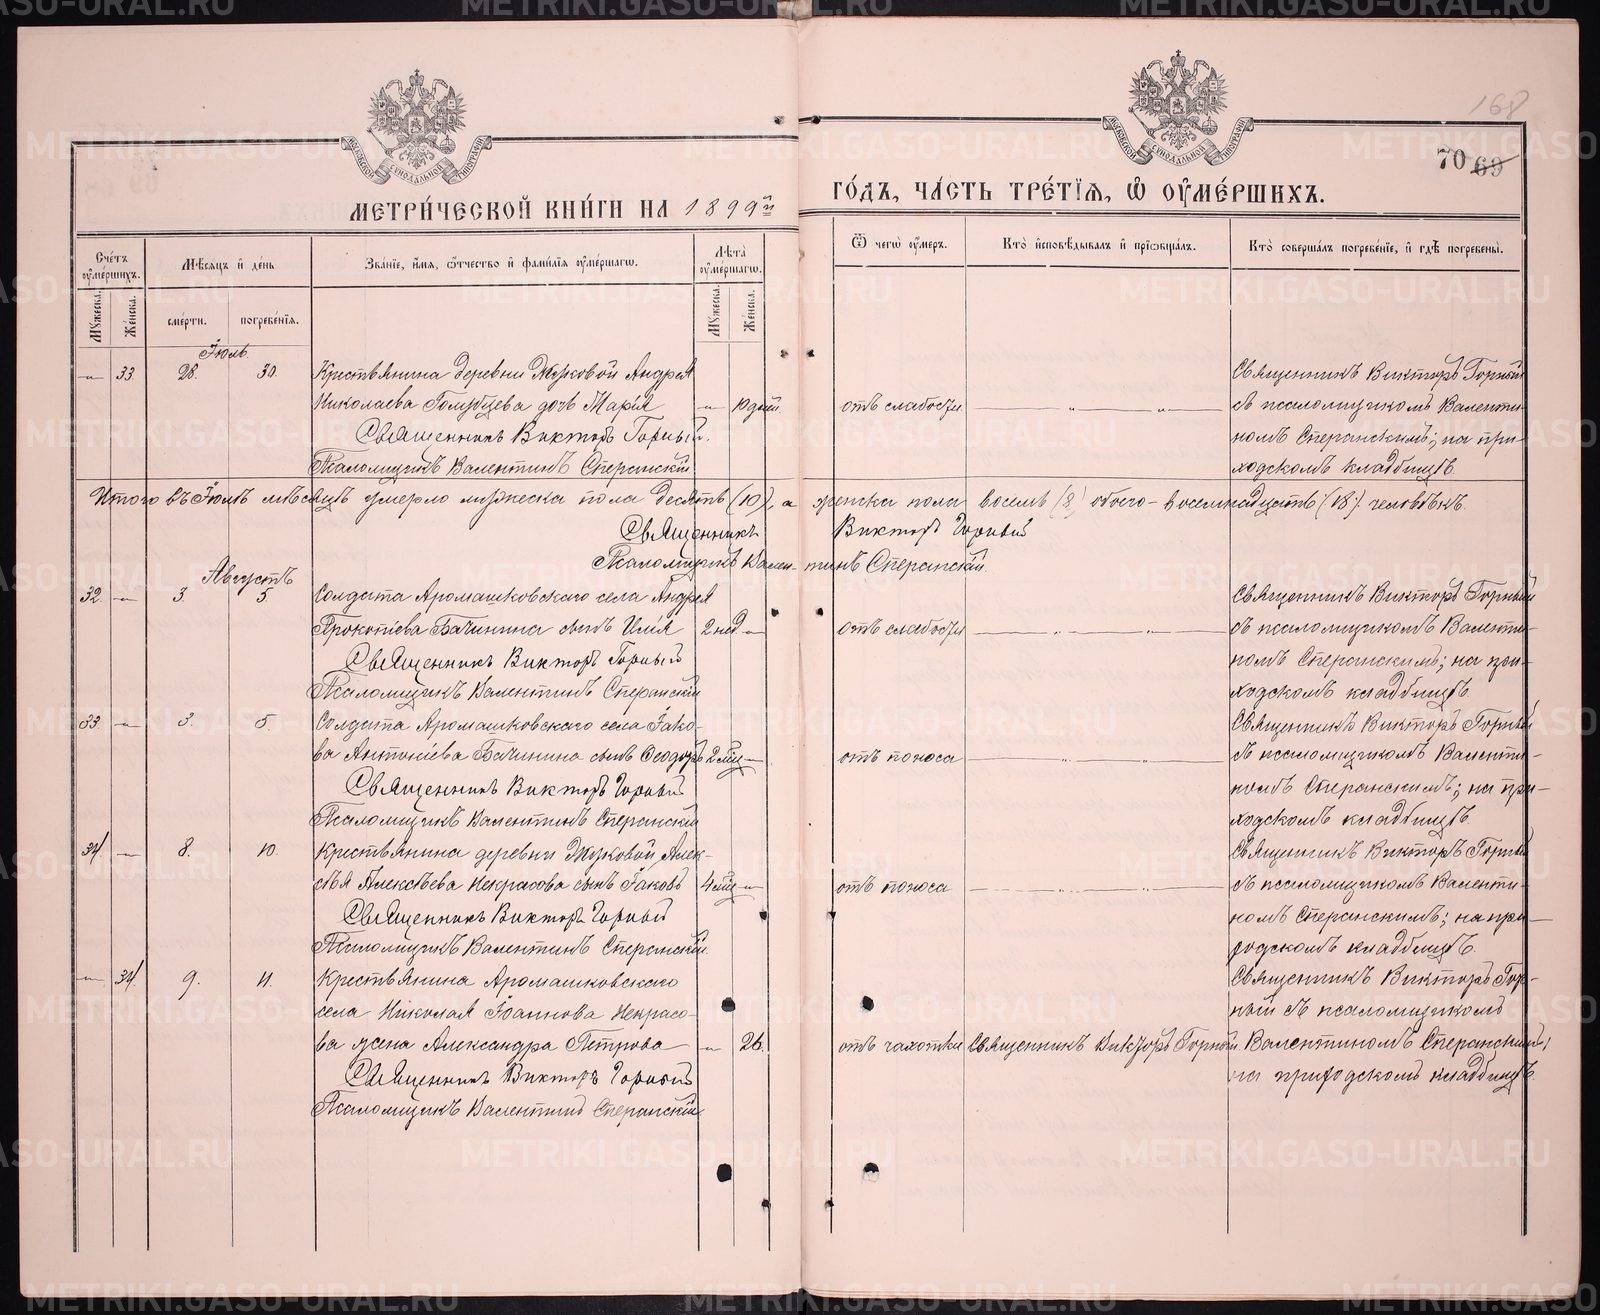 168
70 69
МОСКОВСКОЙ СѴНОДАЛЬНОЙ ТИПОГРАФІИ
МОСКОВСКОЙ СѴНОДАЛЬНОЙ ТИПОГРАФІИ
МЕТРИ́ЧЕСКОЙ КНИ́ГИ НА 1899й
ГО́ДЪ, ЧА́СТЬ ТРЕ́ТІѦ, Ѡ ОУМЕ́РШИХЪ.
Сче́тъ оуме́ршихъ.
Мѣсѧцъ и де́нь
Зва́ніе, и́мѧ, ѻ́тчество и фами́лїѧ оуме́ршагѡ.
Лѣта̀ оуме́ршагѡ.
Ѿ чегѡ̀ оу́меръ.
Кто̀ и҆сповѣ́дывалъ и҆ прїѡбща́лъ.
Кто̀ соверша́лъ погребе́нїе, и҆ гдѣ̀ погребены̀.
Мꙋ́жеска.
Же́нска.
сме́рти.
погребе́нїѧ.
Мꙋ́жеска.
Же́нска.
Іюль.
— 33. 28. 30. Крестьянина деревни Жуковой Андрея
Николаева Голубцева дочь Марія — 10 дней.
Священникъ Викторъ Горный.
Псаломщикъ Валентинъ Сперанскій
отъ слабости
Священникъ Викторъ Горный
съ псаломщикомъ Валенти-
номъ Сперанскимъ; на при-
ходскомъ кладбищѣ.
Итого въ Іюлѣ мѣсяцѣ умерло мужеска пола десять (10), а женска пола восемь (8) обоего – восемнадцать (18) человѣкъ.
Священникъ Викторъ Горный
Псаломщикъ Вален- тинъ Сперанскій.
Августъ
32. — 3. 5. Солдата Аромашковскаго села Андрея
Прокопіева Бачинина сынъ Илія 2 нед —
Священникъ Викторъ Горный
Псаломщикъ Валентинъ Сперанскій
отъ слабости
Священникъ Викторъ Горный
съ псаломщикомъ Валенти-
номъ Сперанскимъ; на при-
ходскомъ кладбищѣ
33. — 3. 5. Солдата Аромашковскаго села Іако-
ва Антоніева Бачинина сынъ Ѳеодоръ 2 мѣс —
Священникъ Викторъ Горный
Псаломщикъ Валентинъ Сперанскій
отъ поноса
Священникъ Викторъ Горный
съ псаломщикомъ Валенти-
номъ Сперанскимъ; на при-
ходскомъ кладбищѣ
34. — 8. 10. Крестьянина деревни Жуковой, Алек-
сѣя Алексѣева Некрасова сынъ Іаковъ 4 мѣс —
Священникъ Викторъ Горный
Псаломщикъ Валентинъ Сперанскій.
отъ поноса
Священникъ Викторъ Горный
съ псаломщикомъ Валенти-
номъ Сперанскимъ; на при-
ходскомъ кладбищѣ.
— 34. 9. 11. Крестьянина Аромашковскаго
села Николая Іоаннова Некрасо-
ва жена Александра Петрова — 26.
Священникъ Викторъ Горный
Псаломщикъ Валентинъ Сперанскій.
отъ чахотки
Священникъ Викторъ Горный.
Священникъ Викторъ Гор-
ный съ псаломщикомъ
Валентиномъ Сперанскимъ;
на приходскомъ кладбищѣ.
METRIKI.GASO-URAL.RU